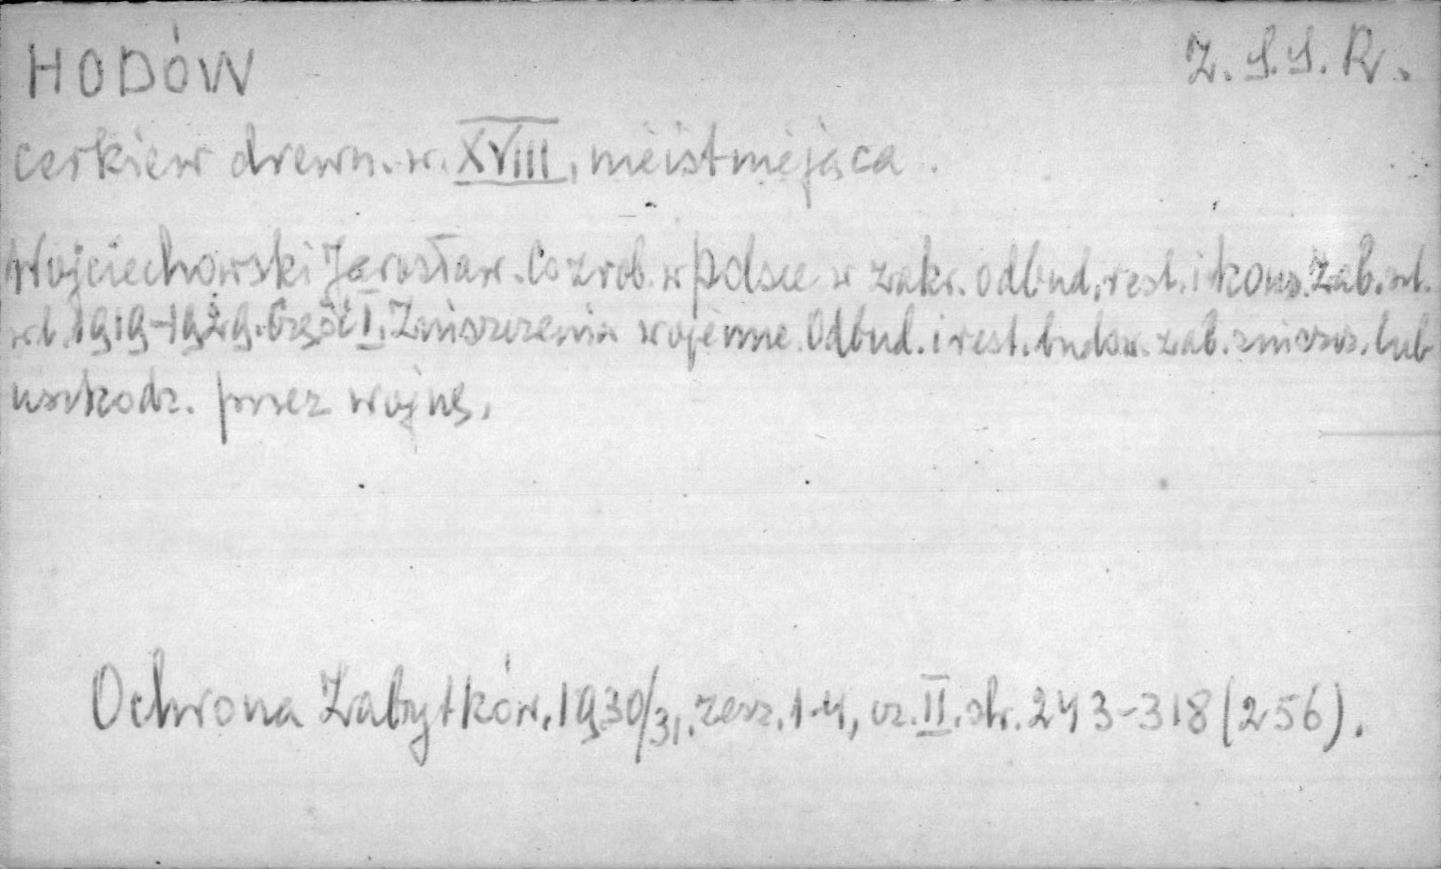 HODÓW
Z.S.S.R.
cerkiew drewn. w. XVIII, nieistniejąca.
Wojciechowski Jarosław. Co zrob. w Polsce w zakr. odbud., rest. i kons. zab. arch.
w l. 1919-1929. Część I. Zniszczenia wojenne. Odbud. i rest. budow. zab. zniszcz. lub
uszkodz. przez wojnę.
Ochrona Zabytków, 1930/31, zesz. 1-4, cz. II. str. 243-318 (256).